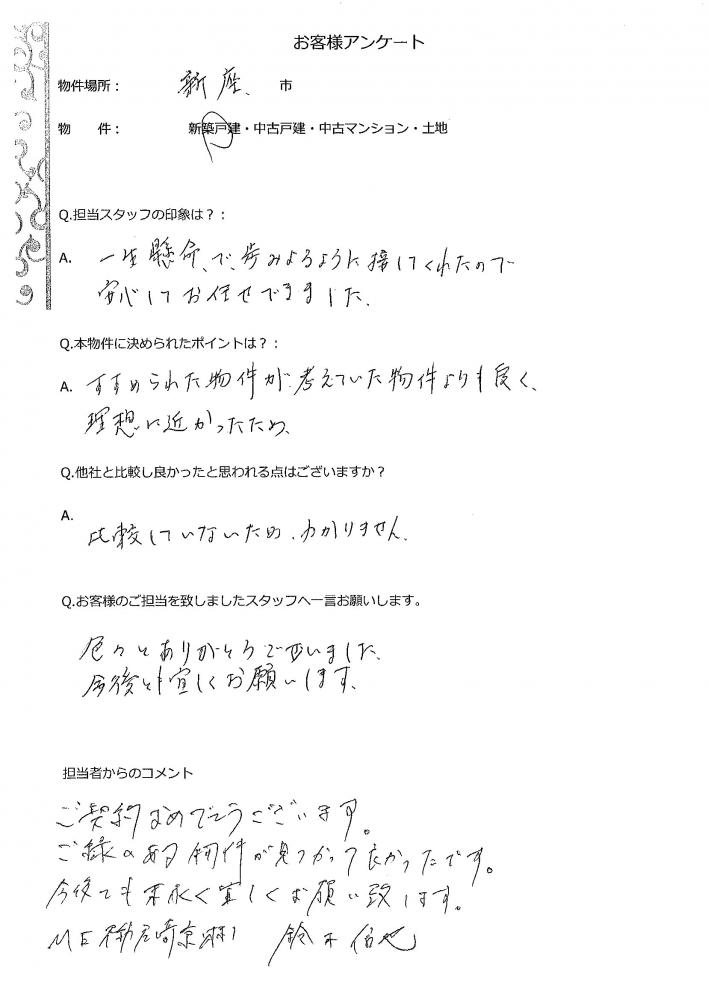 お客様アンケート
物件場所： 新座 市
物 件： 新築戸建・中古戸建・中古マンション・土地
Q.担当スタッフの印象は？：
A. 一生懸命、で、歩みよるように接してくれたので
安心してお任せできました。
Q.本物件に決められたポイントは？：
A. すすめられた物件が考えていた物件よりも良く、
理想に近かったため、
Q.他社と比較し良かったと思われる点はございますか？
A.
比較していないため、わかりません。
Q.お客様のご担当を致しましたスタッフへ一言お願いします。
色々とありがとうございました、
今後とも宜しくお願いします、
担当者からのコメント
ご契約おめでとうございます。
ご縁のある物件が見つかって良かったです。
今後とも末永く宜しくお願い致します。
ME不動産埼京 鈴木